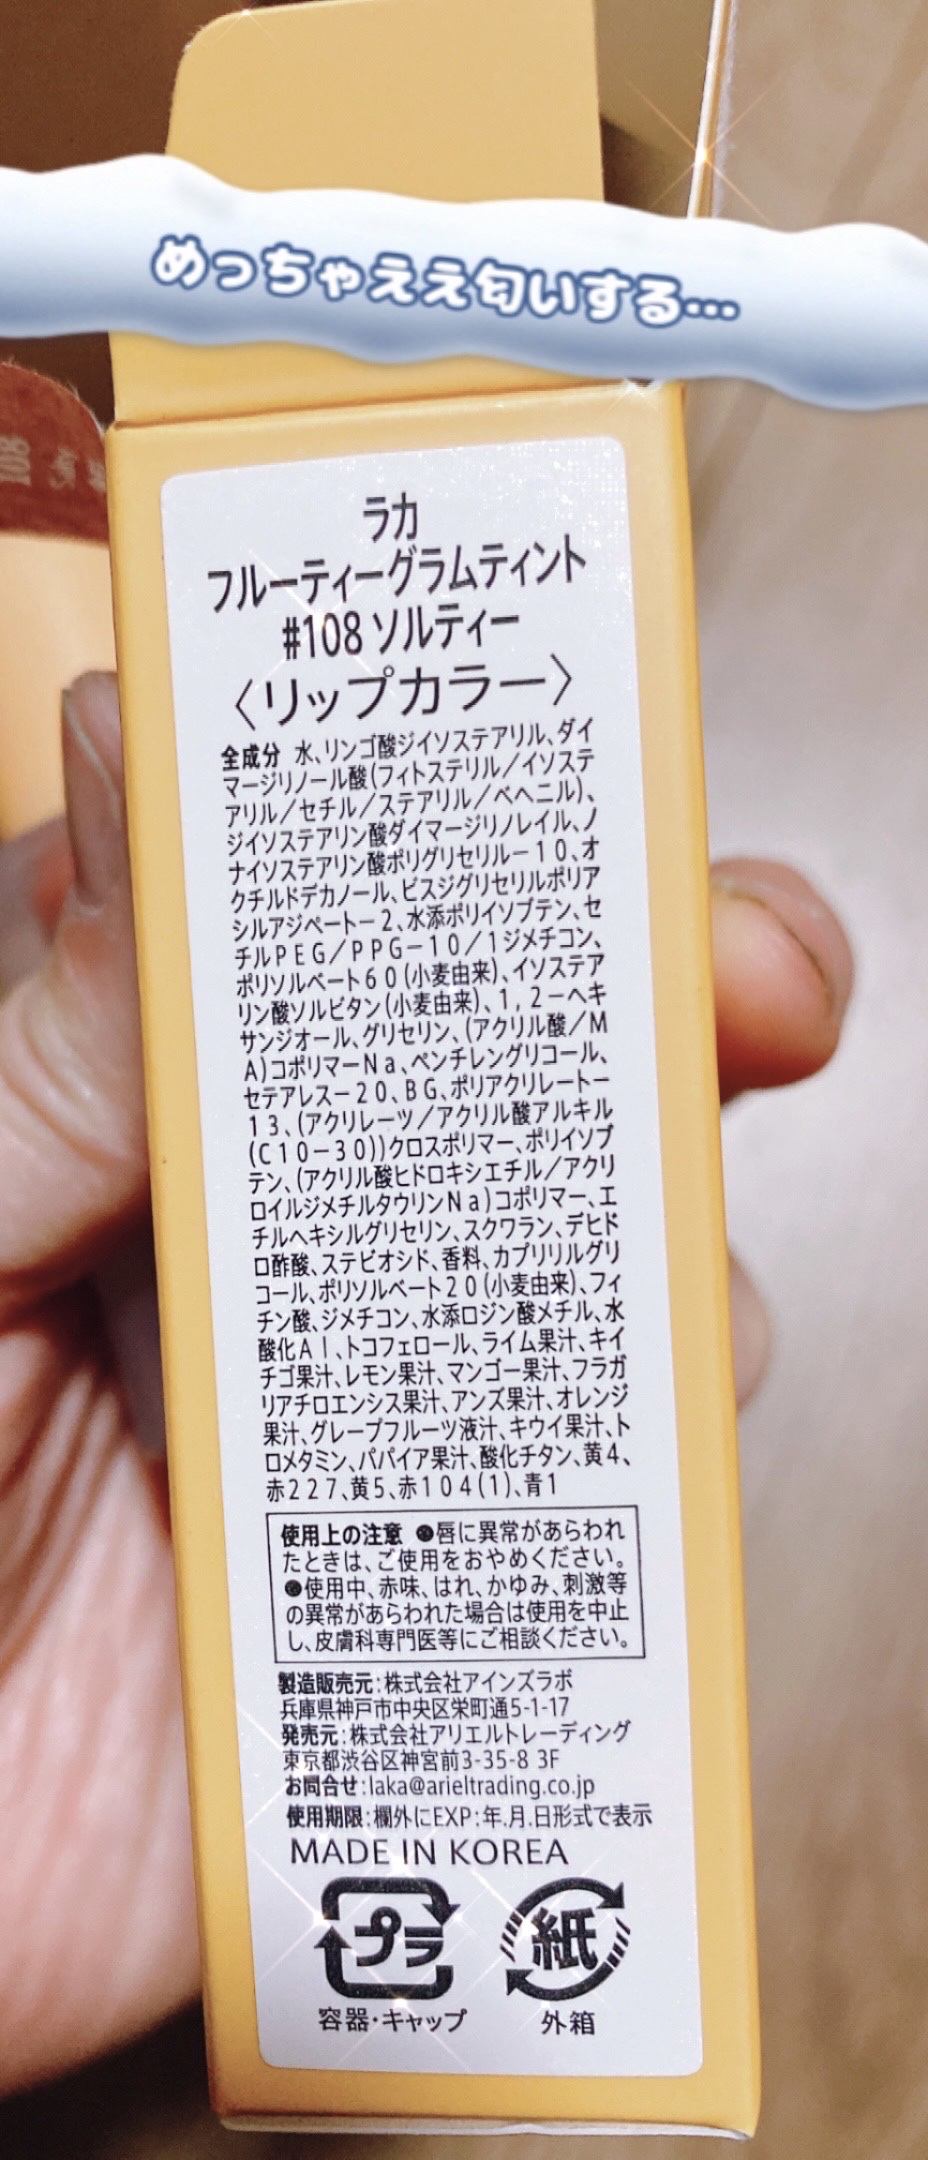 めっちゃええ匂いする…
108
ラカ
フルーティーグラムティント
#108 ソルティー
〈リップカラー〉
全成分 水、リンゴ酸ジイソステアリル、ダイ
マージリノール酸(フィトステリル/イソステ
アリル/セチル/ステアリル/ベヘニル)、
ジイソステアリン酸ダイマージリノレイル、ノ
ナイソステアリン酸ポリグリセリル-10、オ
クチルドデカノール、ビスジグリセリルポリア
シルアジペート-2、水添ポリイソブテン、セ
チルPEG/PPG-10/1ジメチコン、
ポリソルベート60(小麦由来)、イソステア
リン酸ソルビタン(小麦由来)、1,2-ヘキ
サンジオール、グリセリン、(アクリル酸/M
A)コポリマーNa、ペンチレングリコール、
セテアレス-20、BG、ポリアクリレート-
13、(アクリレーツ/アクリル酸アルキル
(C10-30))クロスポリマー、ポリイソブ
テン、(アクリル酸ヒドロキシエチル/アクリ
ロイルジメチルタウリンNa)コポリマー、エ
チルヘキシルグリセリン、スクワラン、デヒド
ロ酢酸、ステビオシド、香料、カプリリルグリ
コール、ポリソルベート20(小麦由来)、フィ
チン酸、ジメチコン、水添ロジン酸メチル、水
酸化Al、トコフェロール、ライム果汁、キイ
チゴ果汁、レモン果汁、マンゴー果汁、フラガ
リアチロエンシス果汁、アンズ果汁、オレンジ
果汁、グレープフルーツ液汁、キウイ果汁、ト
ロメタミン、パパイア果汁、酸化チタン、黄4、
赤227、黄5、赤104(1)、青1
使用上の注意 ●唇に異常があらわれ
たときは、ご使用をおやめください。
●使用中、赤味、はれ、かゆみ、刺激等
の異常があらわれた場合は使用を中止
し、皮膚科専門医等にご相談ください。
製造販売元:株式会社アインズラボ
兵庫県神戸市中央区栄町通5-1-17
発売元:株式会社アリエルトレーディング
東京都渋谷区神宮前3-35-8 3F
お問合せ:laka@arieltrading.co.jp
使用期限:欄外にEXP:年.月.日形式で表示
MADE IN KOREA
プラ 紙
容器・キャップ 外箱